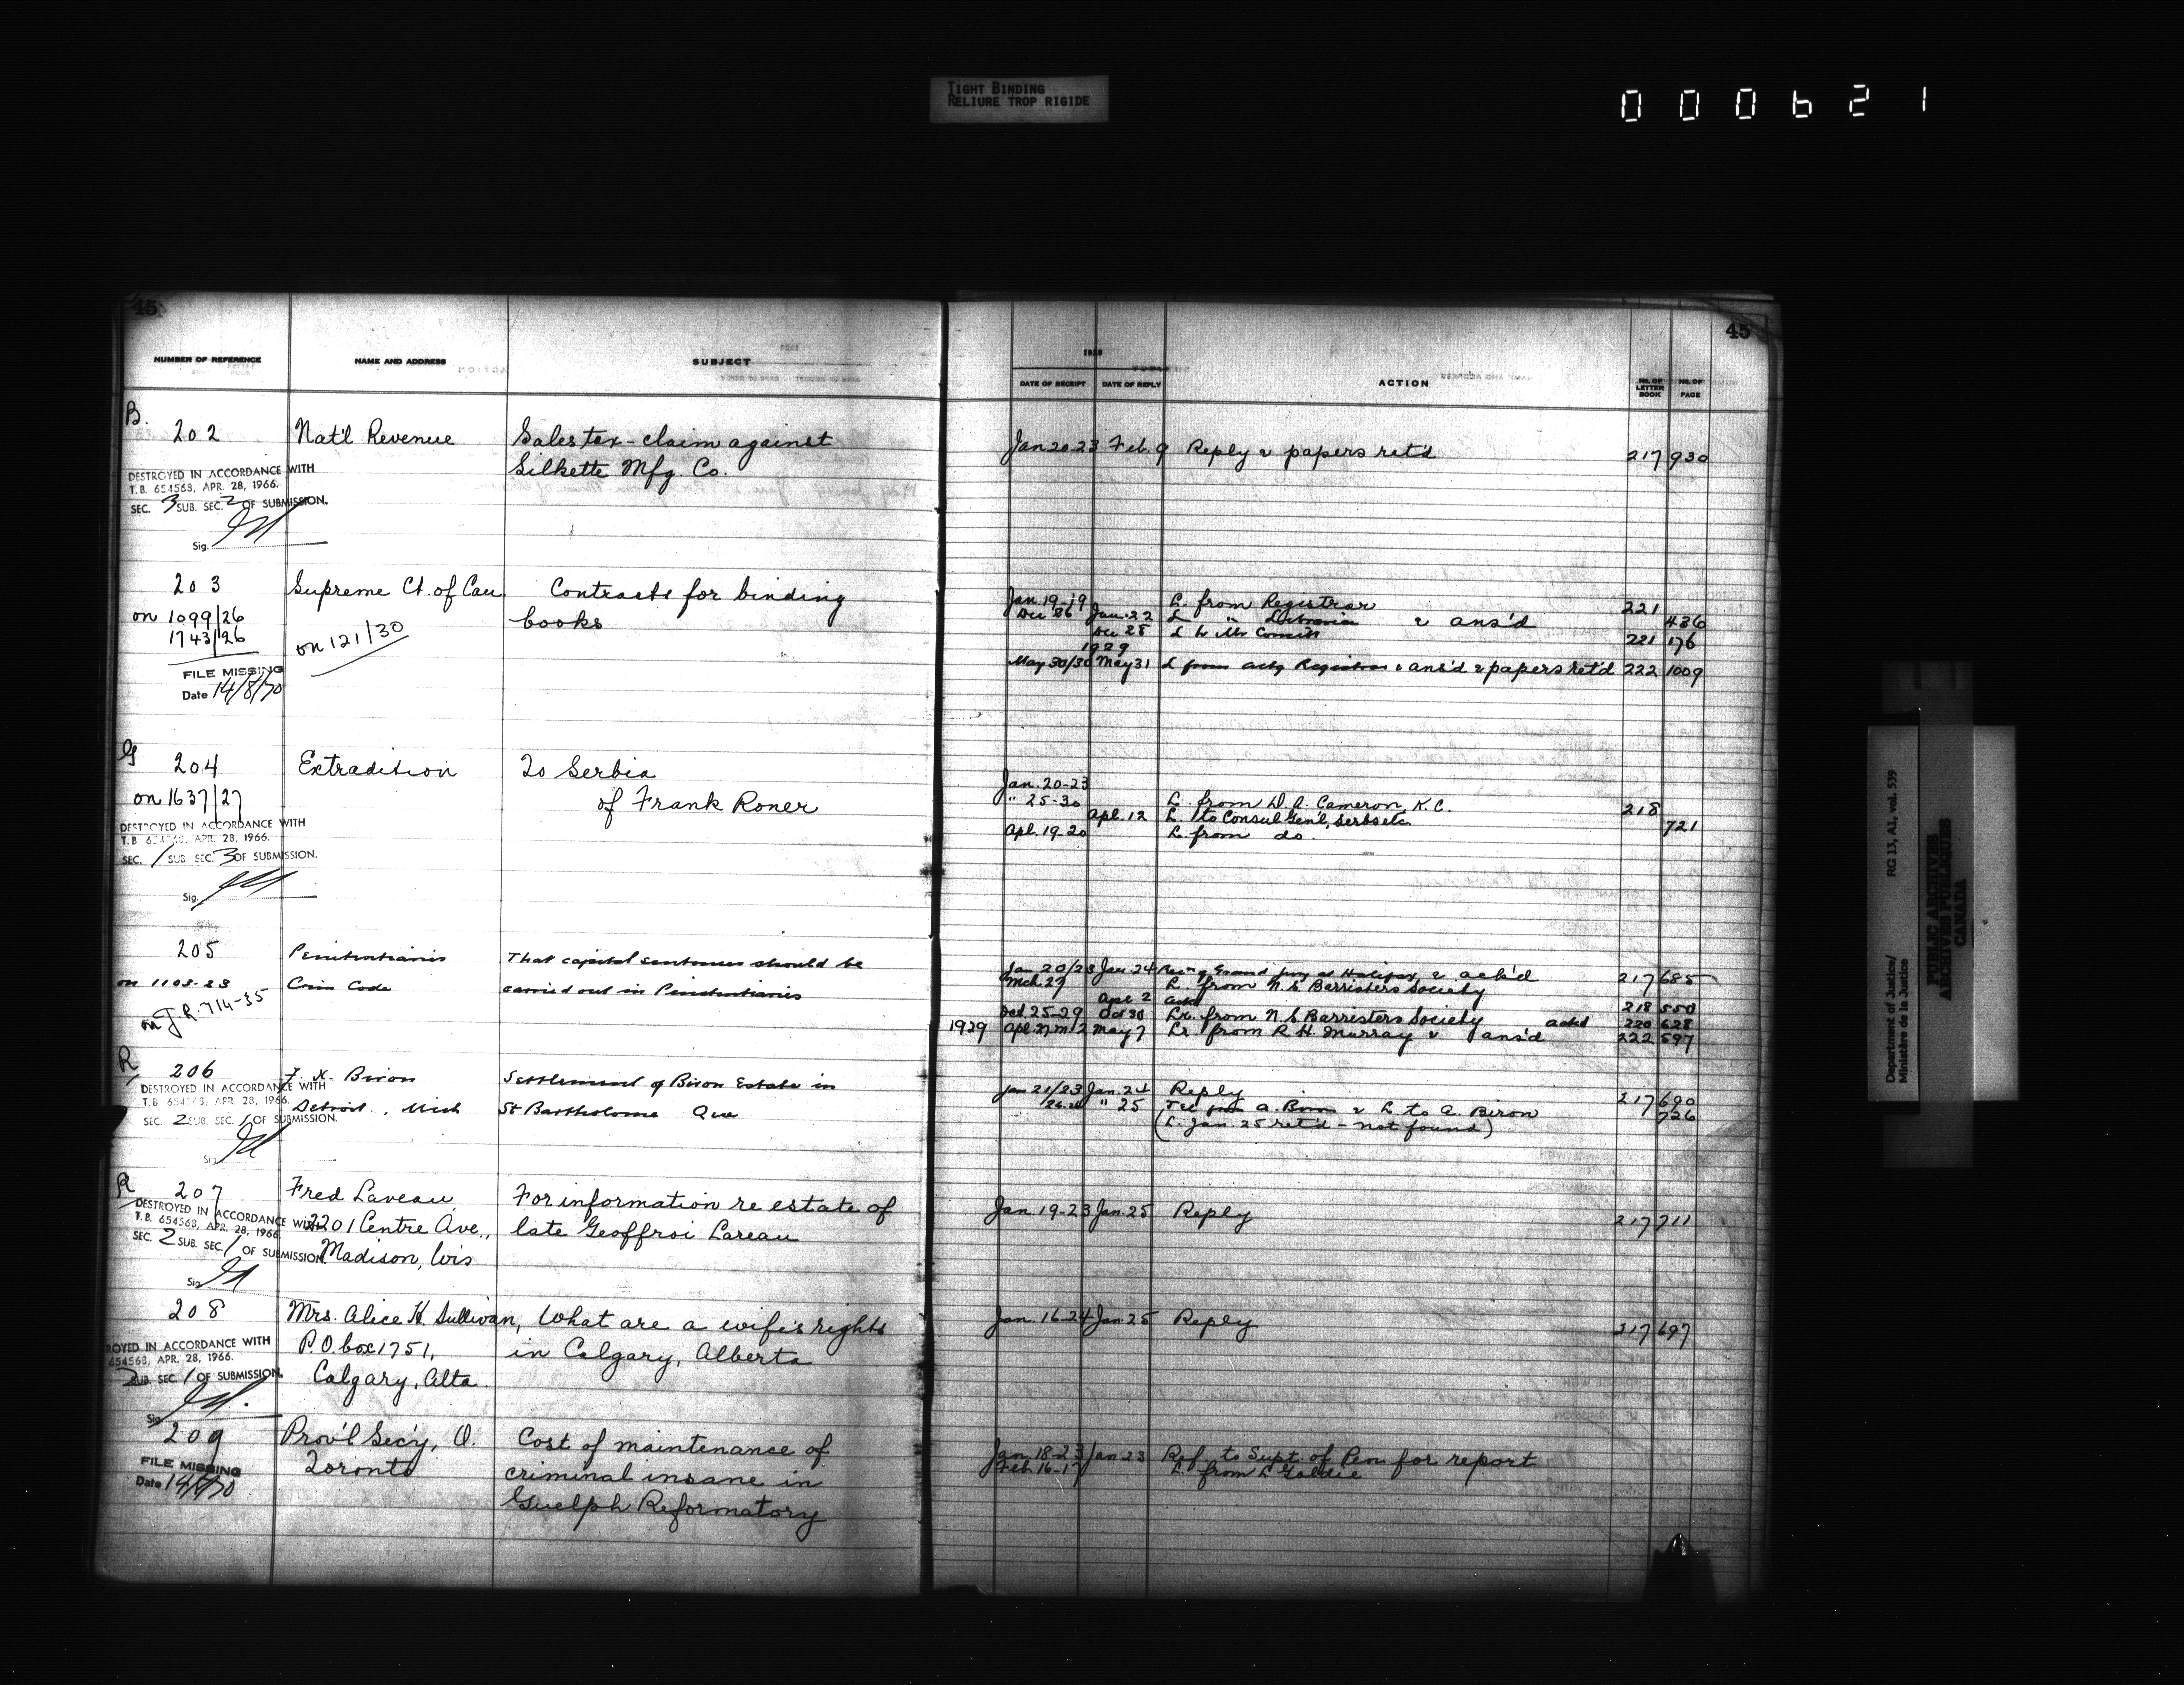 TIGHT BINDING
RELIURE TROP RIGIDE
000621
45
NUMBER OF REFERENCE NAME AND ADDRESS SUBJECT
B.
202 Nat'l Revenue Sales tax - claim against
Silkette Mfg. Co.
DESTROYED IN ACCORDANCE WITH
T.B. 654568, APR. 28, 1966.
SEC. 3 SUB. SEC. 2 OF SUBMISSION.
Sig.
203 Supreme Ct. of Can Contracts for binding
on 1099/26 books
1743/26 on 121/30
FILE MISSING
Date 14/8/70
G
204 Extradition To Serbia
on 1637/27 of Frank Roner
DESTROYED IN ACCORDANCE WITH
T.B. 654568, APR. 28, 1966.
SEC. 1 SUB. SEC. 3 OF SUBMISSION.
Sig.
205 Penitentiaries That capital sentences should be
on 1103-23 Crim Code carried out in Penitentiaries
on J.R. 714-35
R
206 Biron Settlement of Biron Estate in
DESTROYED IN ACCORDANCE WITH
T.B. 654568, APR. 28, 1966.
Detroit, Mich St Bartholome Que
SEC. 2 SUB. SEC. 1 OF SUBMISSION.
Sig
R
207 Fred Laveau, For information re estate of
DESTROYED IN ACCORDANCE WITH
T.B. 654568, APR. 28, 1966.
2201 Centre Ave., late Geoffroi Lareau
SEC. 2 SUB. SEC. 1 OF SUBMISSION.
Madison, Wis.
Sig.
208 Mrs. Alice K. Sullivan, What are a wife's rights
P.O. box 1751, in Calgary, Alberta
ROYED IN ACCORDANCE WITH
654568, APR. 28, 1966.
2 SUB. SEC. 1 OF SUBMISSION.
Calgary, Alta.
Sig.
209 Prov'l Sec'y, O. Cost of maintenance of
Toronto criminal insane in
FILE MISSING
Date 14/8/70
Guelph Reformatory
45
1928
DATE OF RECEIPT DATE OF REPLY ACTION NO. OF LETTER BOOK NO. OF PAGE
Jan 20-23 Feb. 9 Reply & papers ret'd 217 930
Jan 19-19 L. from Registrar 221
Dec 26 Jan. 22 L " Librarian & ans'd 436
Dec 28 L to Mr 221 176
1929
May 30/30 May 31 L from actg Registrar & ans'd & papers ret'd 222 1009
Jan. 20-23
" 25-30 L. from D. A. Cameron, K.C. 218
Apl. 12 L. to Consul Gen'l, Serbs etc. 721
Apl. 19-20 L. from do.
Jan 20/23 Jan. 24 Grand jury at Halifax & ack'd 217 685
Mch 27 L. from N.S. Barristers Society
Apl 2 ackd 218 550
Oct. 25-29 Oct 30 Lr. from N.S. Barristers Society ackd 220 628
1929 Apl. 27 m 2 May 7 Lr from R. H. Murray & ans'd 222 597
Jan 21/23 Jan. 24 Reply 217 690
" 25 Tel from A. Biron & L. to A. Biron 726
(L. Jan. 25 ret'd - not found)
Jan. 19-23 Jan. 25 Reply 217 711
Jan. 16-24 Jan. 25 Reply 217 697
Jan. 18-23 Jan 23 Ref. to Supt. of Pen for report
Feb. 16-17 L. from L Goldie
Department of Justice/ RG 13, A1, vol. 539
Ministère de la Justice
PUBLIC ARCHIVES
ARCHIVES PUBLIQUES
CANADA